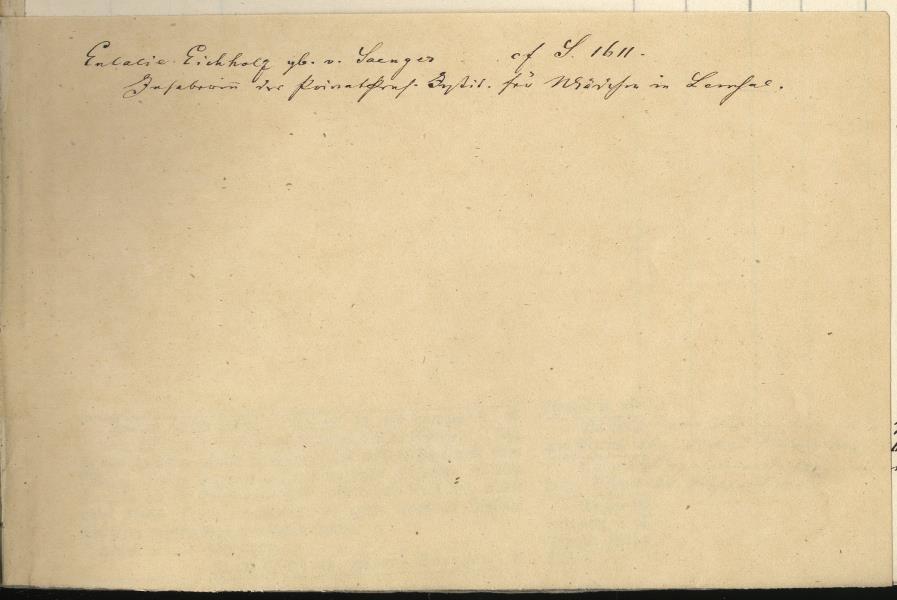 Eulalie Eichholz gb. v. Saenger cf S. 1611.
Inhaberin der Privat Pens. Instit. für Mädchen in